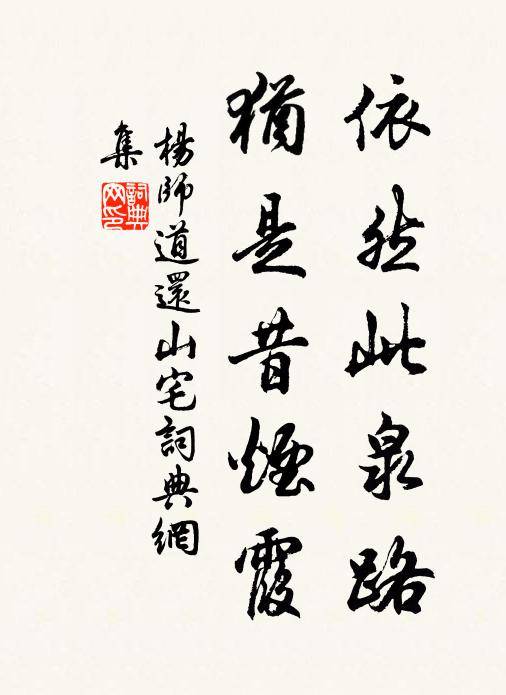 依然此泉路
猶是昔煙霞
楊師道還山宅詞典網
集
詞典
网印